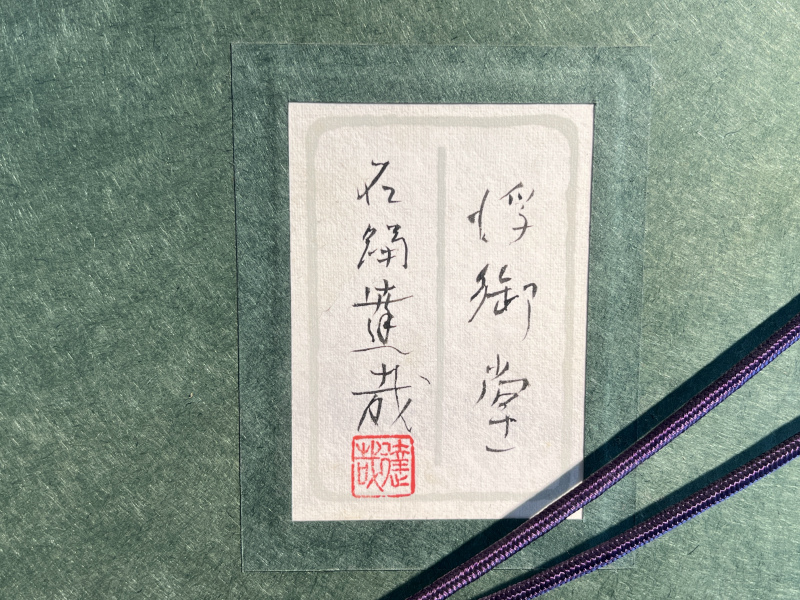 浮御堂
石踊達哉
達哉